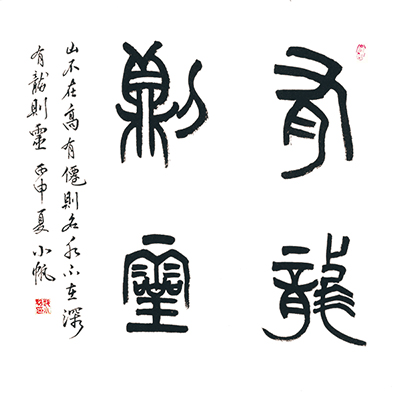 有龍
則靈
山不在高有僊則名水不在深
有龍則靈 丙申夏 小帆